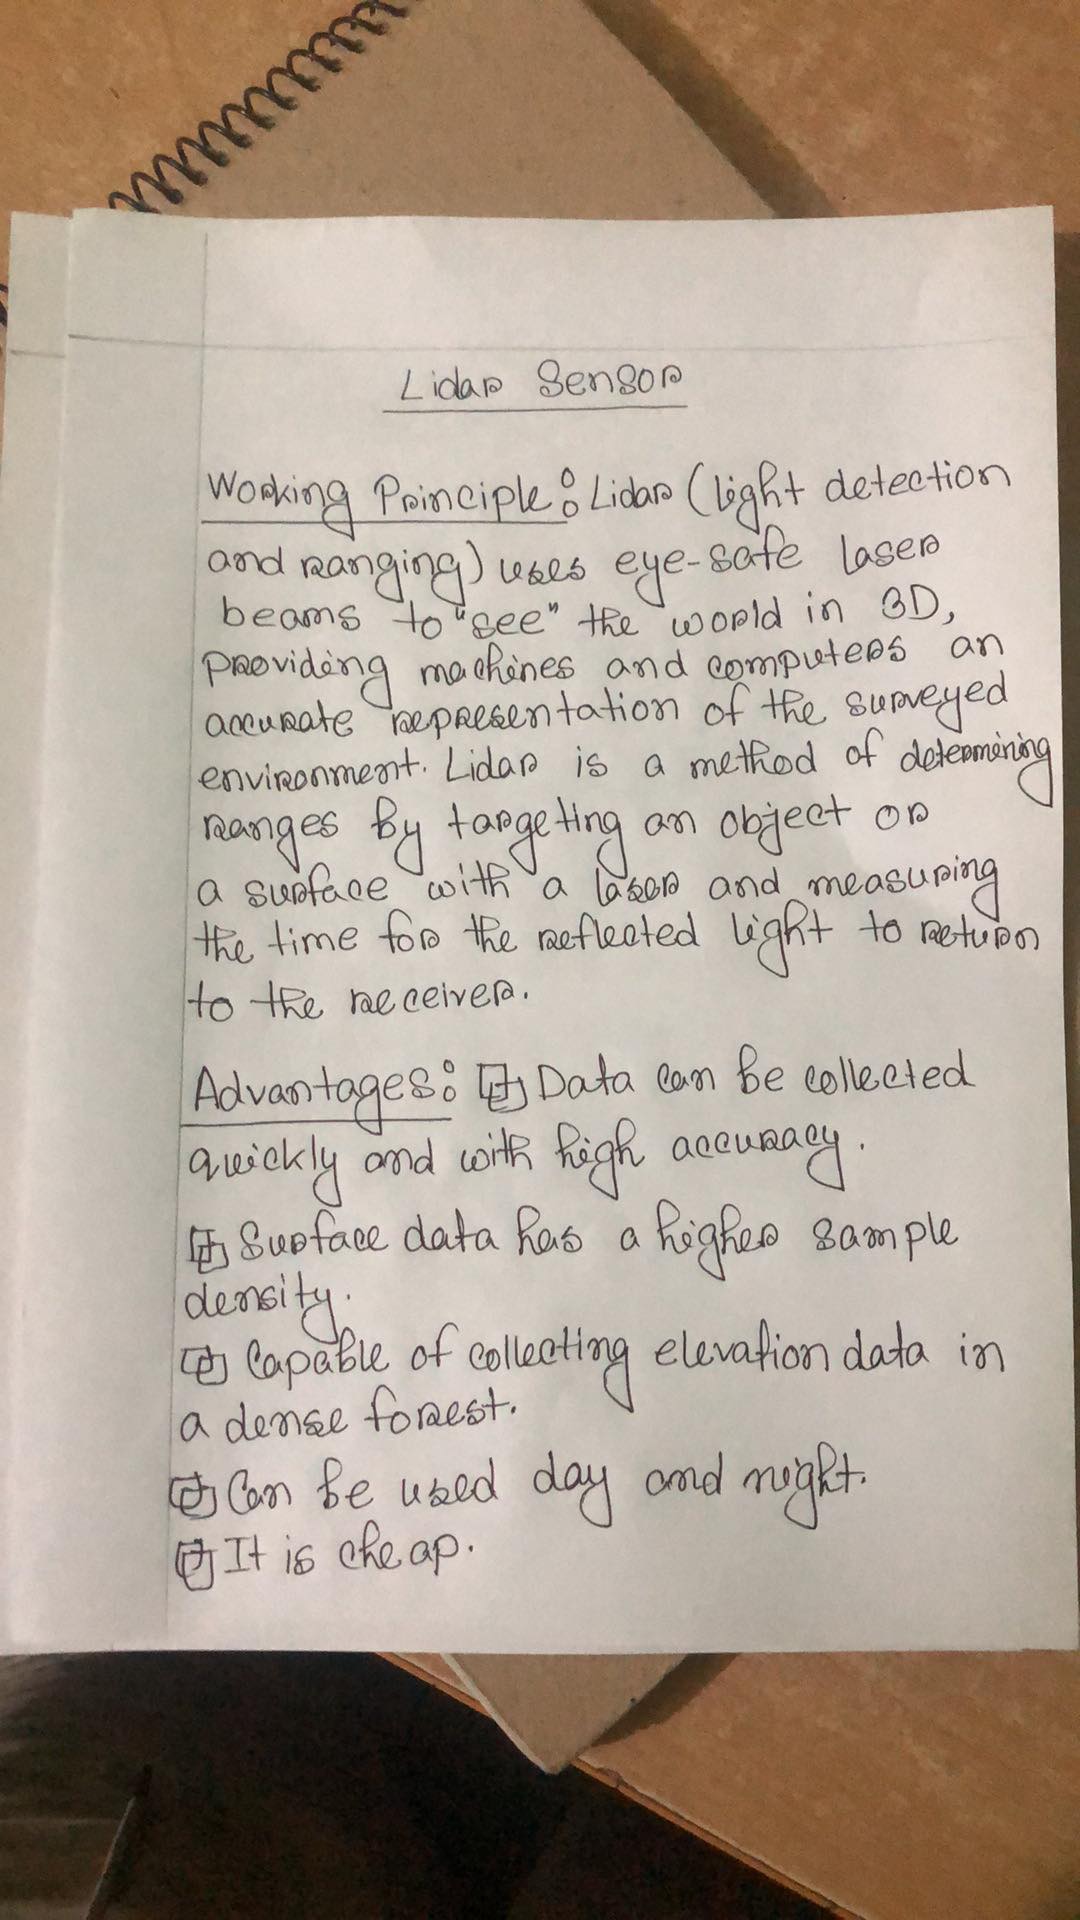 Lidar Sensor
Working Principle: Lidar (light detection
and ranging) uses eye-safe laser
beams to "see" the world in 3D,
providing machines and computers an
accurate representation of the surveyed
environment. Lidar is a method of determining
ranges by targeting an object or
a surface with a laser and measuring
the time for the reflected light to return
to the receiver.
Advantages: Data can be collected
quickly and with high accuracy.
Surface data has a higher sample
density.
Capable of collecting elevation data in
a dense forest.
Can be used day and night.
It is cheap.